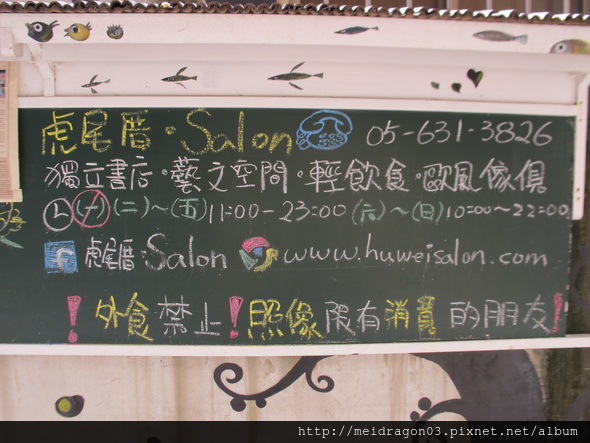 虎尾厝·Salon 05-631-3826
獨立書店·藝文空間·輕飲食·歐風傢俱
(一) (二)~(五) 11:00-23:00 (六)~(日) 10:00~22:00
f 虎尾厝·Salon www.huweisalon.com
!外食禁止!照像限有消費的朋友!
http://meidragon03.pixnet.net/album